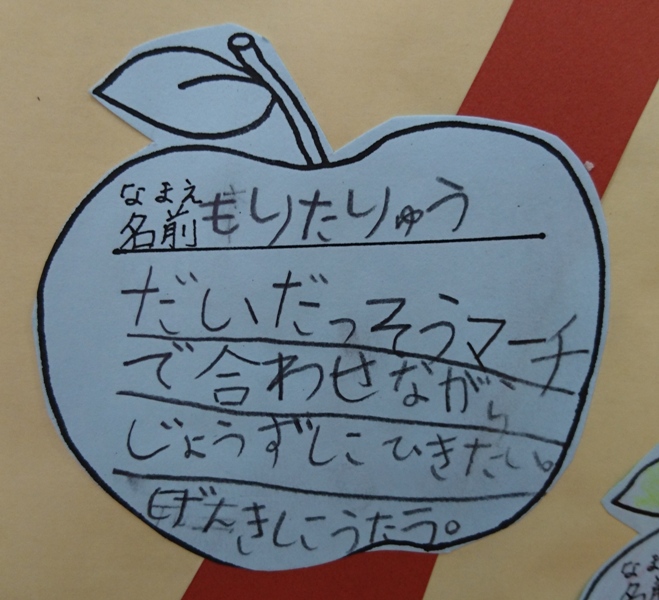 なまえ
名前 もりたりゅう
だいだっそうマーチ
で合わせながら
じょうずにひきたい。
げんきにうたう。
なま
名